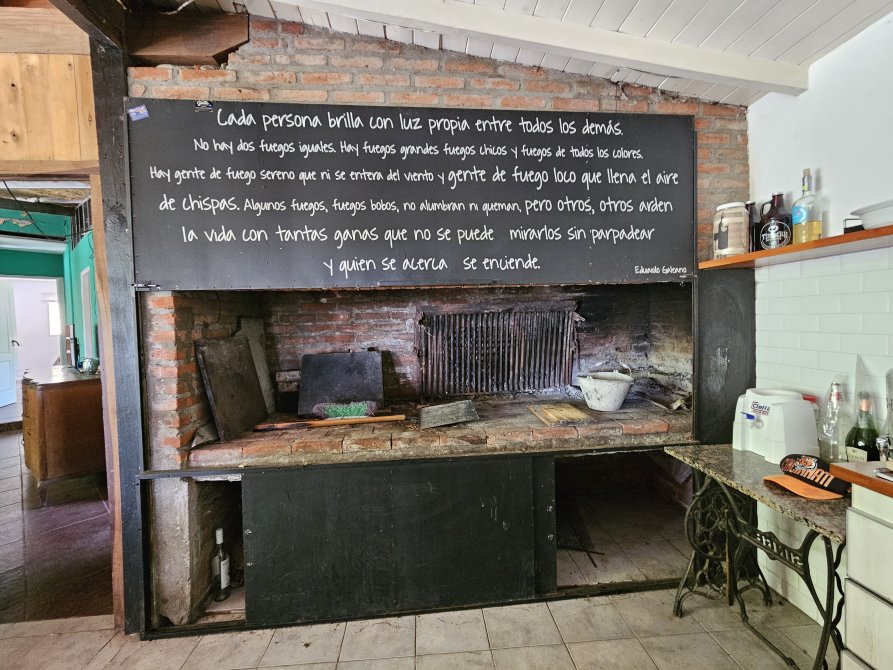 Cada persona brilla con luz propia entre todos los demás.
No hay dos fuegos iguales. Hay fuegos grandes fuegos chicos y fuegos de todos los colores.
Hay gente de fuego sereno que ni se entera del viento y gente de fuego loco que llena el aire
de chispas. Algunos fuegos, fuegos bobos, no alumbran ni queman, pero otros, otros arden
la vida con tantas ganas que no se puede mirarlos sin parpadear
y quien se acerca se enciende.
Eduardo Galeano
CINCINNATI